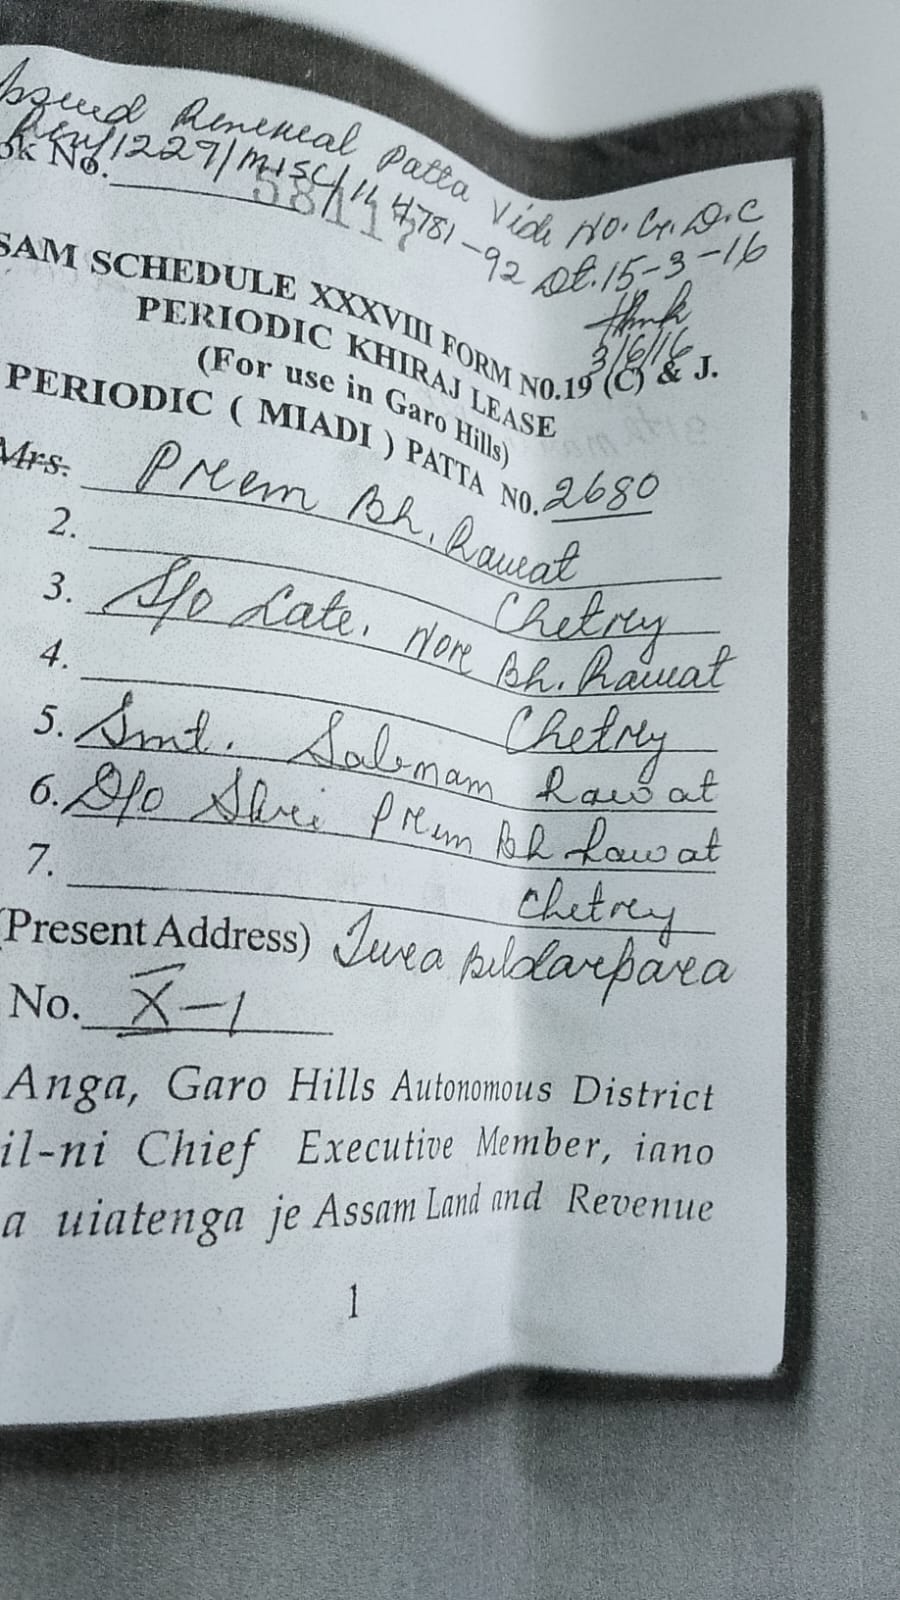 Issued Renewal Patta Vide No. G.D.C
Rev/1227/Misc/11 4781-92 Dt. 15-3-16
ok No. 58117
3/6/16
SAM SCHEDULE XXXVIII FORM N0.19 (C) & J.
PERIODIC KHIRAJ LEASE
(For use in Garo Hills)
PERIODIC ( MIADI ) PATTA N0. 2680
Mrs. Prem Bh. Rawat
2. Chetry
3. S/o Late. Nore Bh. Rawat
4. Chetry
5. Smt. Rawat
6. D/o Shri Prem Bh Rawat
7. Chetry
(Present Address)
No. X-1
Anga, Garo Hills Autonomous District
il-ni Chief Executive Member, iano
a uiatenga je Assam Land and Revenue
1